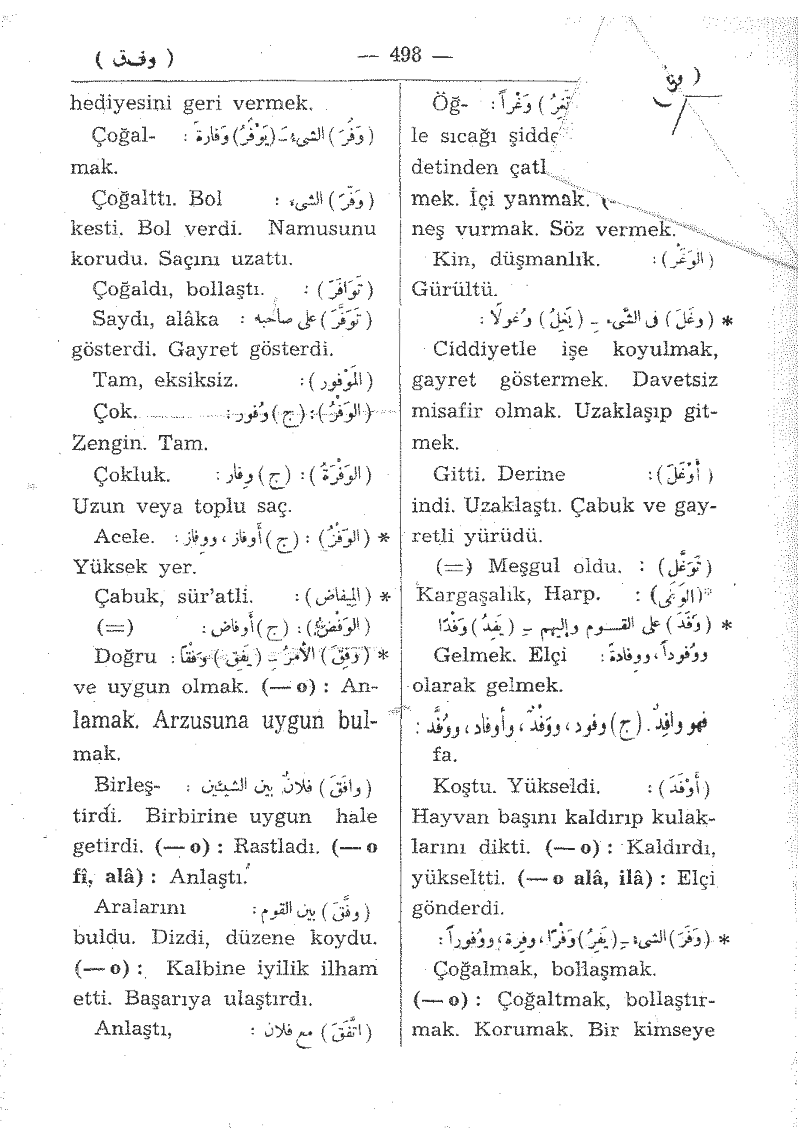 ( وفق ) — 498 —
تَغِرُ ) وَغْراً : Öğ-
le sıcağı
mek. İçi yanmak.
neş vurmak. Söz vermek.
(الوَغْر) : Kin, düşmanlık.
Gürültü.
* (وغَلَ) فى الشَّىء ـ (يَغِلُ) وُغولاً :
Ciddiyetle işe koyulmak,
gayret göstermek. Davetsiz
misafir olmak. Uzaklaşıp git-
mek.
(أَوْغَلَ) : Gitti. Derine
indi. Uzaklaştı. Çabuk ve gay-
retli yürüdü.
(تَوَغَّل) : Meşgul oldu. (=)
*(الوَغَى) : Kargaşalık, Harp.
* (وَفَدَ) على القـوم وإليهم ـ (يَفِدُ) وَفْدًا
ووُفوداً، ووِفادة : Gelmek. Elçi
olarak gelmek.
فهو وافِدٌ. (ج) وفود، ووَفْدٌ، وأوفاد، ووُفَّد :
fa.
(أَوْفَدَ) : Koştu. Yükseldi.
Hayvan başını kaldırıp kulak-
larını dikti. (— o) : Kaldırdı,
yükseltti. (— o alâ, ilâ) : Elçi
gönderdi.
* (وَفَرَ) الشىء ـ (يَفِرُ) وَفْرًا، وفِرة، ووُفوراً :
Çoğalmak, bollaşmak.
(— o) : Çoğaltmak, bollaştır-
mak. Korumak. Bir kimseye
hediyesini geri vermek.
(وَفُرَ) الشىءُ ـ (يَوْفُرُ) وَفارةً : Çoğal-
mak.
(وَفَّرَ) الشىء : Çoğalttı. Bol
kesti. Bol verdi. Namusunu
korudu. Saçını uzattı.
(تَوَافَرَ) : Çoğaldı, bollaştı.
(تَوَفَّرَ) على صاحبه : Saydı, alâka
gösterdi. Gayret gösterdi.
(المَوْفور) : Tam, eksiksiz.
(الوَفْرُ) : (ج) وُفور : Çok.
Zengin. Tam.
(الوَفْرَةُ) : (ج) وِفار : Çokluk.
Uzun veya toplu saç.
* (الوَفْزُ) : (ج) أوفاز، ووِفاز : Acele.
Yüksek yer.
* (المِيفاض) : Çabuk, sür'atli.
(الوَفْضُ) : (ج) أوفاض : (=)
* (وَفِقَ) الأَمْرُ ـ (يَفِق) وَفْقاً : Doğru
ve uygun olmak. (— o) : An-
lamak. Arzusuna uygun bul-
mak.
(وافَقَ) فلانٌ بين الشيئين : Birleş-
tirdi. Birbirine uygun hale
getirdi. (— o) : Rastladı. (— o
fî, alâ) : Anlaştı.
(وفَّقَ) بين القوم : Aralarını
buldu. Dizdi, düzene koydu.
(— o) : Kalbine iyilik ilham
etti. Başarıya ulaştırdı.
(اتَّفَقَ) مع فلان : Anlaştı,